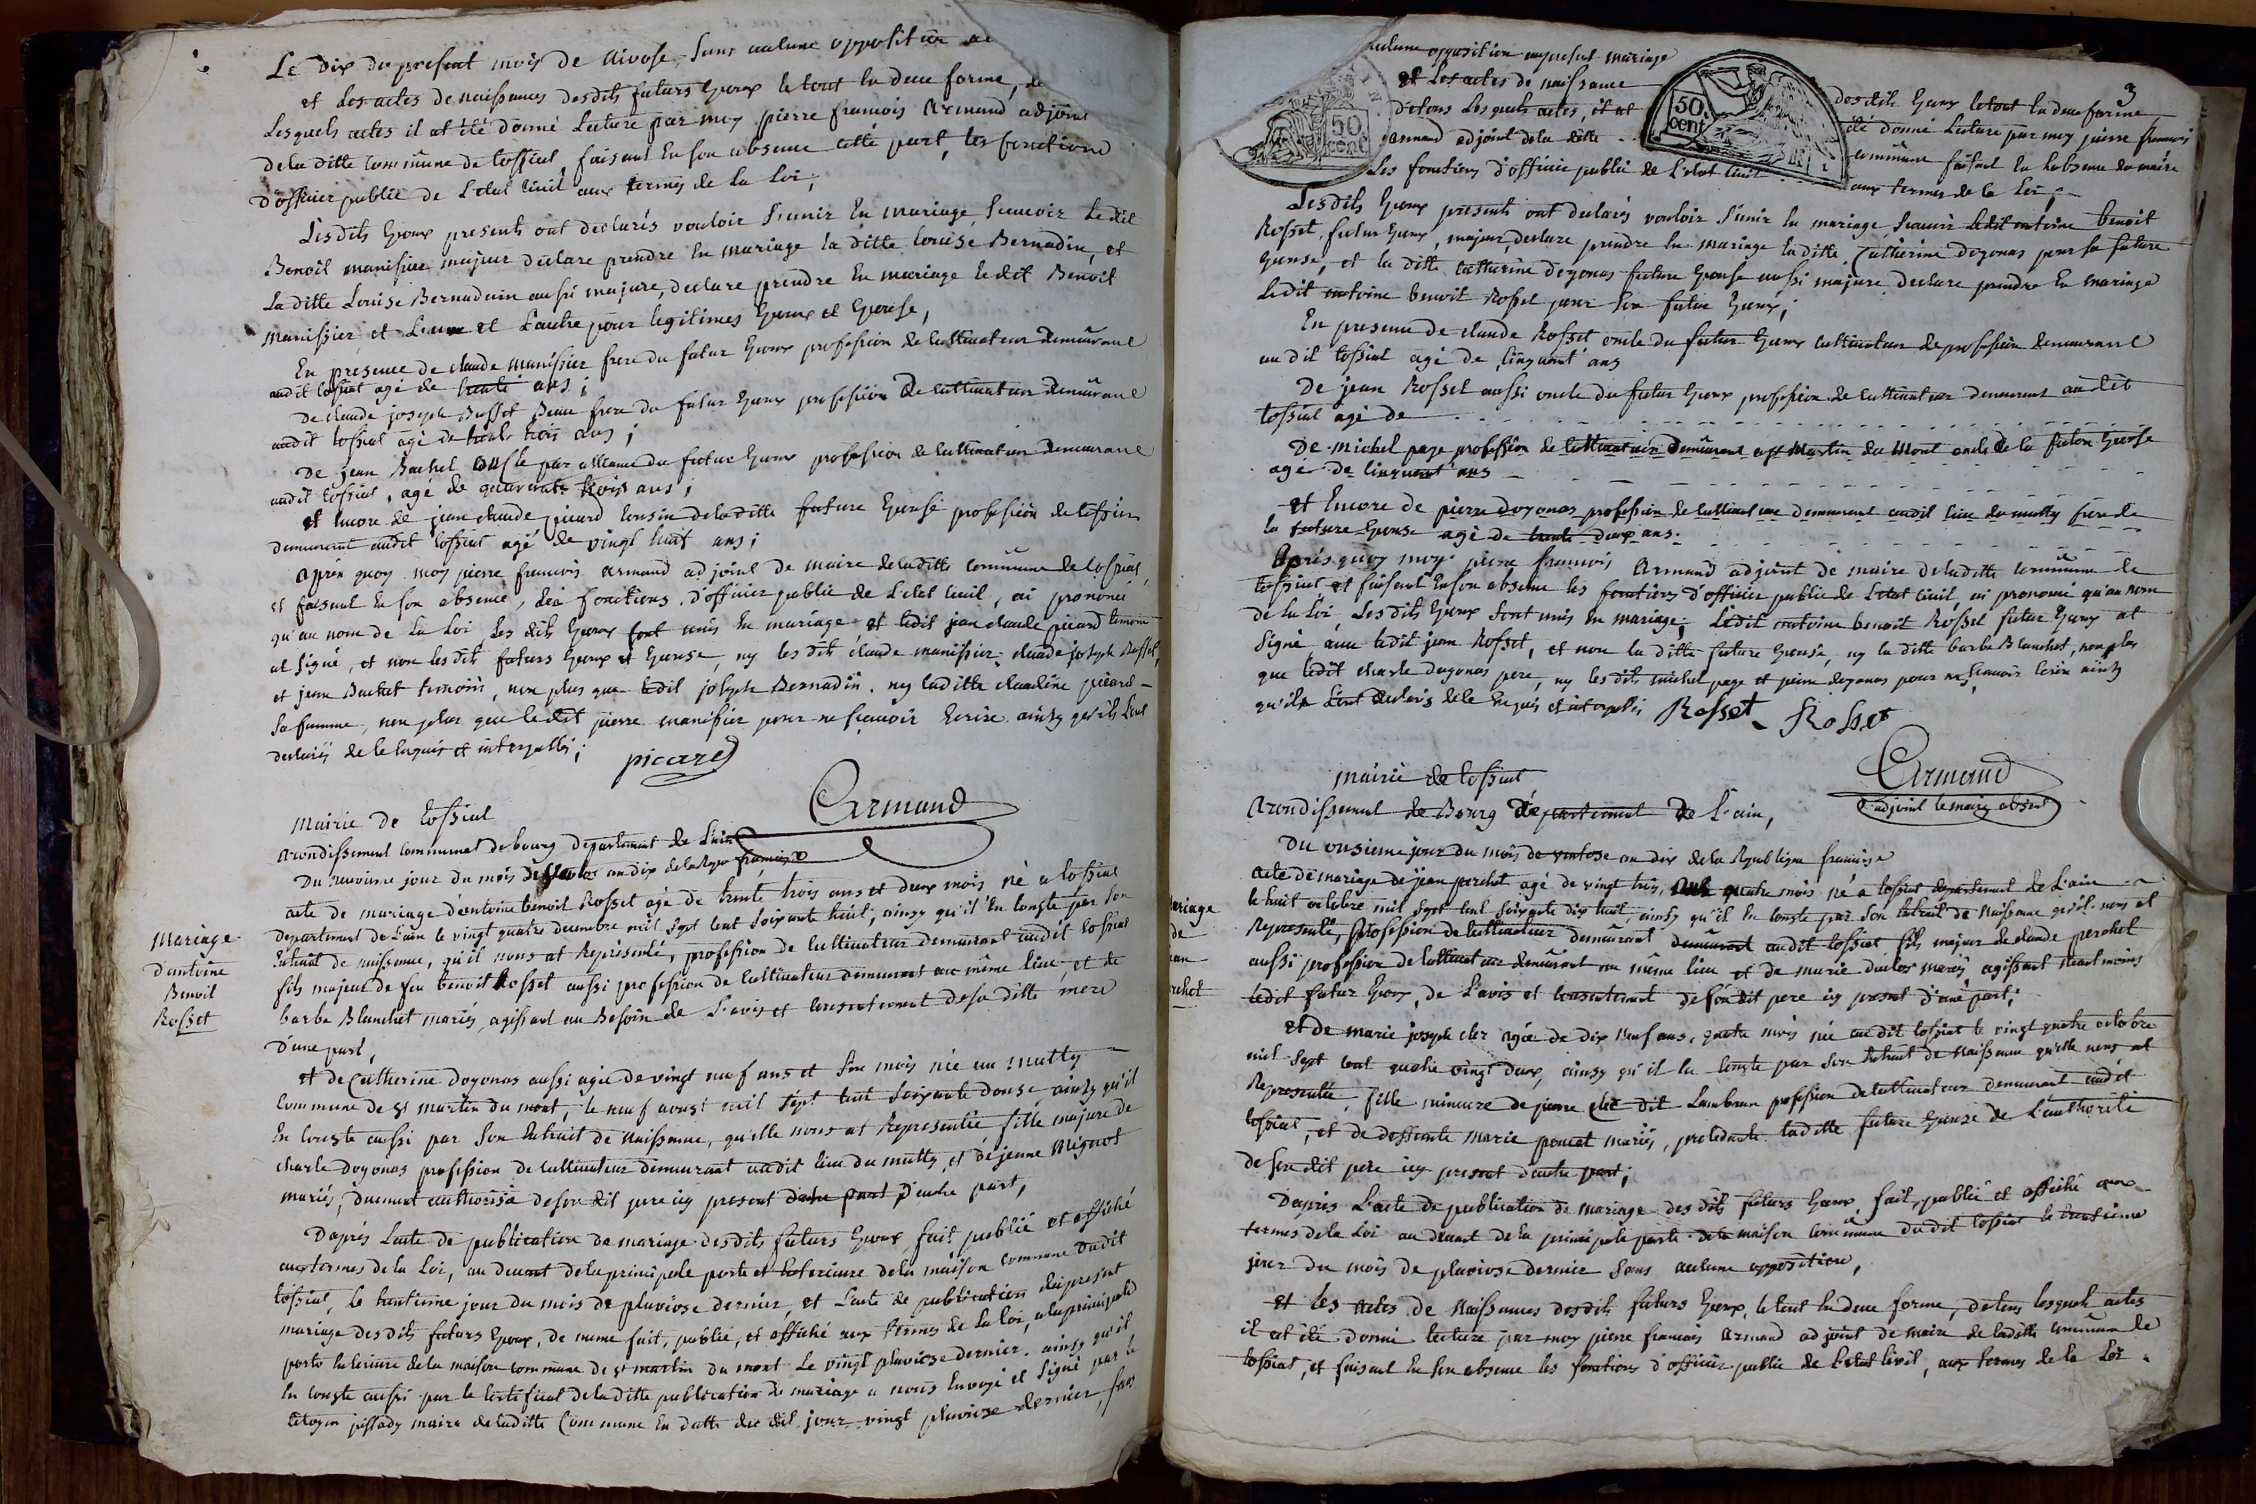 Le Dix du present mois de Nivose, Sans aulune opposition
et Les actes de naissances desdits futurs Epoux le tout En due forme, de
Lesquels actes il at été donné Lecture par moy pierre francois Armand adjoint
de la ditte Commune de tossiat, faisant En son absence cette part, les fonctions
d'officier publie de L'etat Civil aux termes de la Loi,
Lesdits Epoux presents ont declarés vouloir S'unir En mariage, Scavoir Ledit
Benoit manissier majeur declare prendre En mariage la ditte louise Bernadin, et
La ditte Louise Bernaduin aussi majure, declare prendre En mariage ledit Benoit
Manissier, et L'un et L'autre pour legitimes Epoux et Epouse,
En presence de claude manissier frere du futur Epoux profession de Cultivateur demeurant
audit tossiat agé de trente ans ;
De claude joseph Buffet Beau frere du futur Epoux profession De cultivateur demeurant
audit tossiat agé de trente trois ans ;
De jean Bachet par alliance du futur Epoux profession de Cultivateur demeurant
audit tossiat, agé de quarante trois ans ;
et Encore de jean claude picard Cousin de laditte future Epouse profession de
demeurant audit tossiat agé de vingt huit ans ;
Après quoy moy pierre francois Armand adjoint de maire de laditte Commune de tossiat,
et faisant En son absence, les fonctions d'officier public de L'etat Civil, ai prononcé
qu'au nom de La Loi Les dits Epoux sont unis En mariage et ledit jean claude picard temoin
at signé, et non les dits futurs Epoux et Epouse, ny les dits claude manissier, claude joseph Buffet,
et jean Bachet temoins, non plus que ledit joseph Bernadin, ny laditte claudine picard
sa femme, non plus que ledit pierre manissier pour ne sçavoir Ecrire ainsy qu'ils L'ont
declarés de le Enquis et interpellés ;
picard
Armand
Mairie de tossiat
Arondissement Communal de bourg Departement de L'ain
Du neuvieme jour du mois de an dix de la Repu francaise
Mariage
d'antoine
Benoit
Rosset
acte de mariage d'antoine benoit Rosset agé de trente trois ans et deux mois né a tossiat
departement de L'ain le vingt quatre decembre mil sept cent soixante huit, ainsy qu'il En conste par son
Extrait de naissance, qu'il nous at Représenté, profession de Cultivateur demeurant audit tossiat
fils majeur de feu benoit Rosset aussi profession de Cultivateur demeurant au même lieu et de
barbe Blanchet mariés, agissant au Besoin de L'avis et consentement de sa ditte mere
d'une part,
et de Catherine Doyonas aussi agée de vingt neuf ans et six mois née au mutty
Commune de st martin du mont, le neuf aoust mil sept cent soixante douse, ainsy qu'il
En conste aussi par Son Extrait de Naissance, qu'elle nous at Representée fille majeure de
charle doyonas profession de Cultivateur demeurant audit lieu du mutty, et de jeanne Mignot
mariés, duement authorisée de son dit pere icy present d'autre part d'autre part,
D'après L'acte de publication de mariage desdits futurs Epoux, fait publié et affiché
aux termes de la Loi, au devant de la principale porte et Exterieure de la maison commune dudit
tossiat, le trentieme jour du mois de pluviose dernier, et L'acte de publication du present
mariage desdits futurs Epoux, de meme fait, publié, et affiché aux termes de la loi, a la principale
porte Exterieure de la maison Commune de st martin du mont le vingt pluviose dernier, ainsy qu'il
En conste aussi par le Certificat de la ditte publication de mariage a nous Envoyé et signé par le
citoyen maire de laditte Commune En datte du dit jour vingt pluviose dernier, sans
3
aulune opposition au present mariage
et Les actes de naissance desdits Epoux le tout En due forme
de tous Lesquels actes, il at été donné Lecture par moy pierre francois
armand adjoint de la ditte commune faisant En Labsence du maire
Les fonctions d'officier public de L'etat Civil aux termes de la Loi ;
50 cent
50 cent
Les dits Epoux presents ont declarés vouloir S'unir En mariage, Scavoir ledit antoine benoit
Rosset, futur Epoux, majeur, declare prendre En mariage la ditte Catherine doyonas pour sa future
Epouse, et la ditte Catherine doyonas future Epouse aussi majeure declare prendre En mariage
Ledit antoine benoit Rosset pour Son futur Epoux ;
En presence de claude Rosset oncle du futur Epoux Cultivateur de profession demeurant
au dit tossiat agé de Cinquant ans
De jean Rosset aussi oncle du futur Epoux profession de Cultivateur demeurant audit
tossiat agé de
De michel page profession de Cultivateur Demeurant a st Martin du Mont oncle de la future Epouse
agé de Cinquant ans
et Encore de pierre doyonas profession de Cultivateur demeurant audit lieu du mutty frere de
la future Epouse agé de trente deux ans.
Après quoy moy pierre francois Armand adjoint de maire de laditte Commune de
tossiat et faisant En son absence les fonctions d'officier public de L'etat Civil, ai prononcé qu'au nom
de la Loi, Les dits Epoux Sont unis En mariage, Ledit antoine benoit Rosset futur Epoux at
Signé avec ledit jean Rosset, et non la ditte future Epouse, ny la ditte barbe Blanchet, non plus
que ledit charle doyonas pere, ny les dits michel page et pierre doyonas pour ne Scavoir Ecrire ainsy
qu'ils L'ont declarés de le Enquis et interpellés
Rosset Rosset
Armand
adjoint le maire absent
Mairie de tossiat
Arondissement de Bourg Département de L'ain,
Du onsieme jour du mois de ventose an dix de la Republique francaise
Mariage
de
jean
perchet
acte de mariage de jean perchet agé de vingt trois, ans quatre mois né a tossiat departement de L'ain
le huit octobre mil sept cent soixante dix huit, ainsy qu'il En conste par Son Extrait de Naissance qu'il nous at
Representé, profession de Cultivateur demeurant demeurant audit tossiat fils majeur de claude perchet
aussi profession de Cultivateur demeurant au même lieu et de marie duclos mariés, agissant Neantmoins
ledit futur Epoux, de L'avis et Consentement de son dit pere icy present d'une part ;
et de marie joseph clez agée de dix neuf ans, quatre mois née audit tossiat le vingt quatre octobre
mil Sept cent quatre vingt deux, ainsy qu'il En conste par Son Extrait de Naissance qu'elle nous at
Representée, fille mineure de pierre clez dit Lambrun profession de Cultivateur demeurant audit
tossiat, et de deffunte marie poncet mariés, procedante laditte future Epouse de L'authorité
de son dit pere icy present d'autre part ;
D'après L'acte de publication de mariage des dits futurs Epoux, fait, publié et affiché aux
termes de la Loi au devant de la principale porte de la maison Commune du dit tossiat le trentieme
jour du mois de pluviose dernier Sans aulune opposition,
et les actes de Naissances desdits futurs Epoux, le tout En due forme, de tous lesquels actes
il at été donné Lecture par moy pierre francois Armand adjoint de maire de laditte commune de
tossiat, et faisant En Son absence les fonctions d'officier public de L'etat Civil, aux termes de la Loi